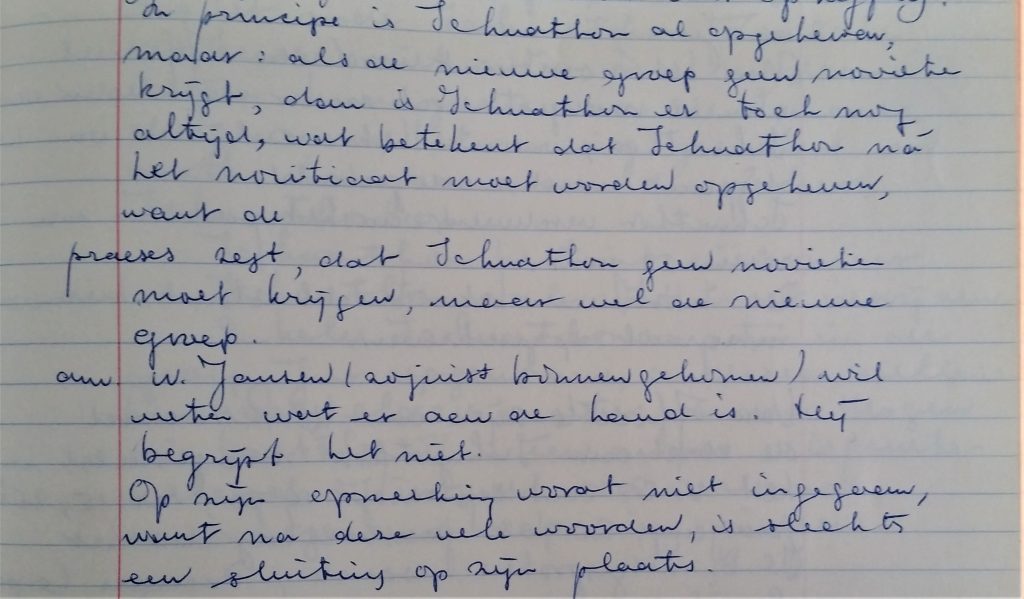 In principe is Schuathon al opgeheven,
maar: als de nieuwe groep geen novieten
krijgt, dan is Schuathon er toch nog
altijd, wat betekent dat Schuathon ná
het novitiaat moet worden opgeheven,
want de
praeses zegt, dat Schuathon geen novieten
moet krijgen, maar wel de nieuwe
groep.
am. W. Jansen (zojuist binnengekomen) wil
weten wat er aan de hand is. Hij
begrijpt het niet.
Op zijn opmerking wordt niet ingegaan,
want na deze vele woorden, is slechts
een sluiting op zijn plaats.